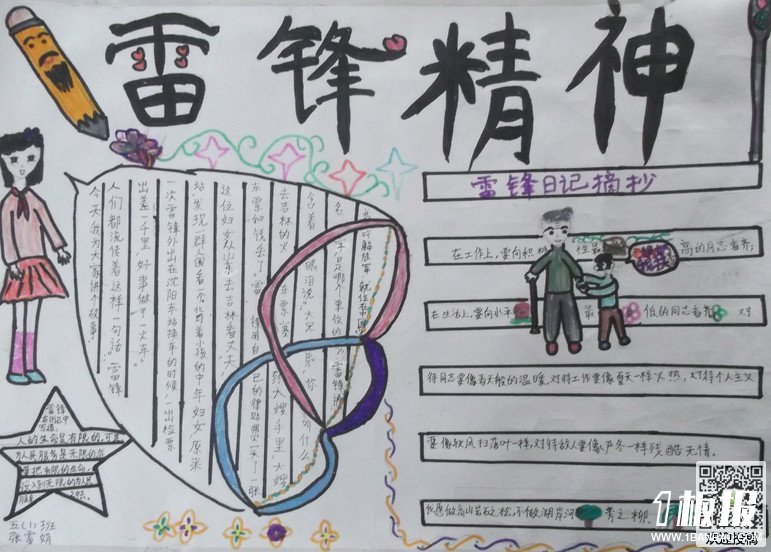 雷锋精神
雷锋日记摘抄
在工作上,要向积极性最高的同志看齐;
在生活上,要向水平最低的同志看齐 对
待同志要像春天般的温暖,对待工作要像夏天一样火热,对待个人主义
要像秋风扫落叶一样,对待敌人要像严冬一样残酷无情。
我愿做高山岩石之松,不做湖岸河旁之柳
今天我为大家讲个故事
人们都流传着这样一句话“雷锋
出差一千里,好事做了一火车”
一次雷锋外出在沈阳车站换车的时候,一出检票
站,发现一群人围着一个背着小孩的中年妇女,原来
这位妇女从山东去吉林看丈夫
车票和钱丢了 雷锋用自己的津贴费买了一张
去吉林的火车票塞到大嫂
含着眼泪说:“大兄弟,你叫什么
雷锋
在日记中
写道:
人的生命是有限的,可是
为人民服务是无限的
要把有限的生命,
投入到无限的为人民
服务之中去。
五(1)班
张雪娟
1板报
WWW.1BANBAO.COM